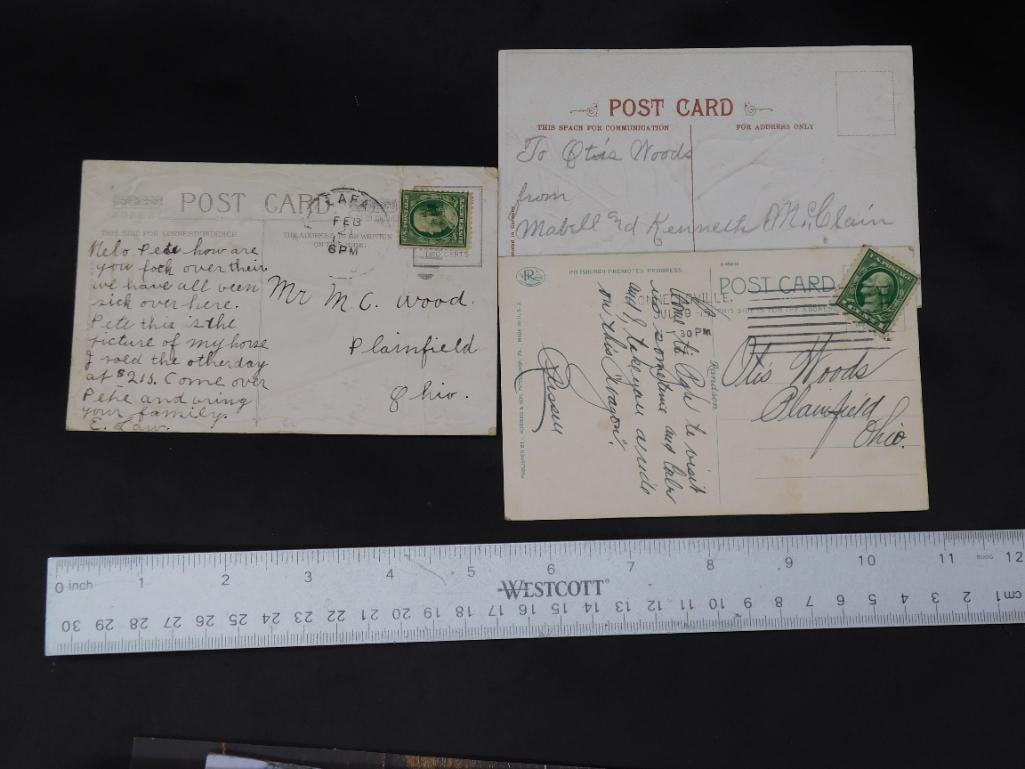 POST CARD
THIS SIDE FOR CORRESPONDENCE
LAFA
FEB
6PM
TWO CENTS
Helo Pete how are
you fock over their
we have all been
sick over here.
Pete this is the
picture of my horse
I sold the otherday
at $215. Come over
Pete and bring
your family.
E. Law.
Mr M. C. Wood.
Plainfield
Ohio.
POST CARD
THIS SPACE FOR COMMUNICATION
FOR ADDRESS ONLY
To Otis Woods
from
Mabell and Kenneth McClain
PITTSBURGH PROMOTES PROGRESS.
POST CARD
THIS SIDE IS FOR THE ADDRESS
30 PM
Come to Pgh to visit
us sometime and
and I take you a ride
on this Wagon.
Russell
Otis Woods
Plainfield
Ohio.
0 inch 1 2 3 4 5 6 7 8 9 10 11 12
WESTCOTT
30 29 28 27 26 25 24 23 22 21 20 19 18 17 16 15 14 13 12 11 10 9 8 7 6 5 4 3 2 1 cm